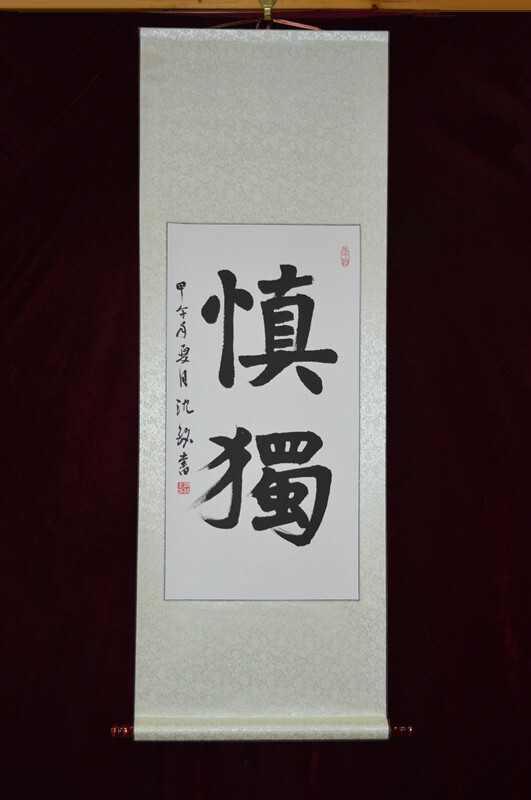 慎獨
甲午年夏月沈銘書